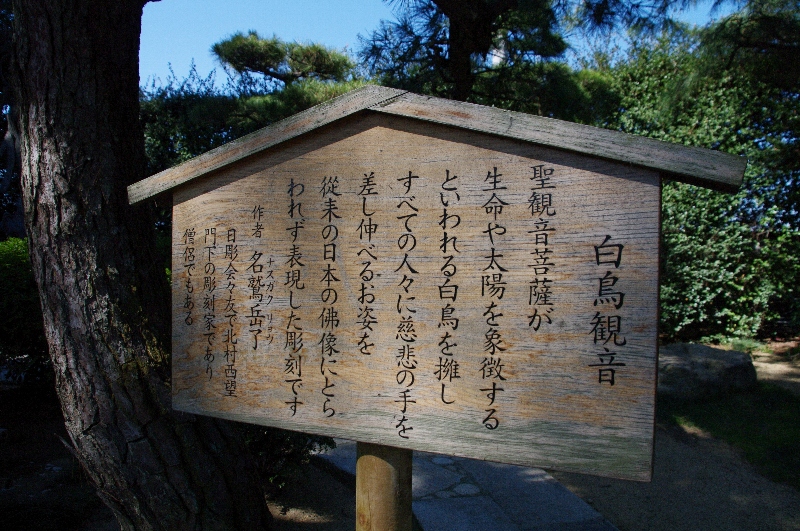 白鳥観音
聖観音菩薩が
生命や太陽を象徴する
といわれる白鳥を擁し
すべての人々に慈悲の手を
差し伸べるお姿を
従来の日本の佛像にとら
われず表現した彫刻です
作者 名鷲岳了
ナスガク リョウ
日彫会々友で北村西望
門下の彫刻家であり
僧侶でもある